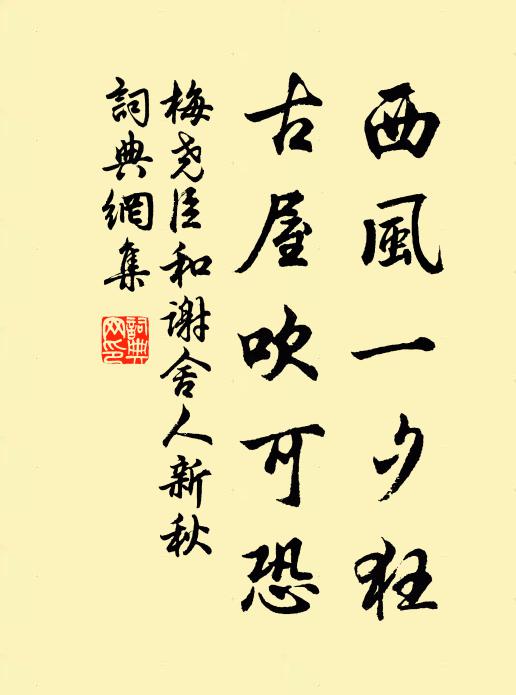 西風一夕狂
古屋吹可恐
梅尧臣和谢舍人新秋
詞典網集
詞典
网印